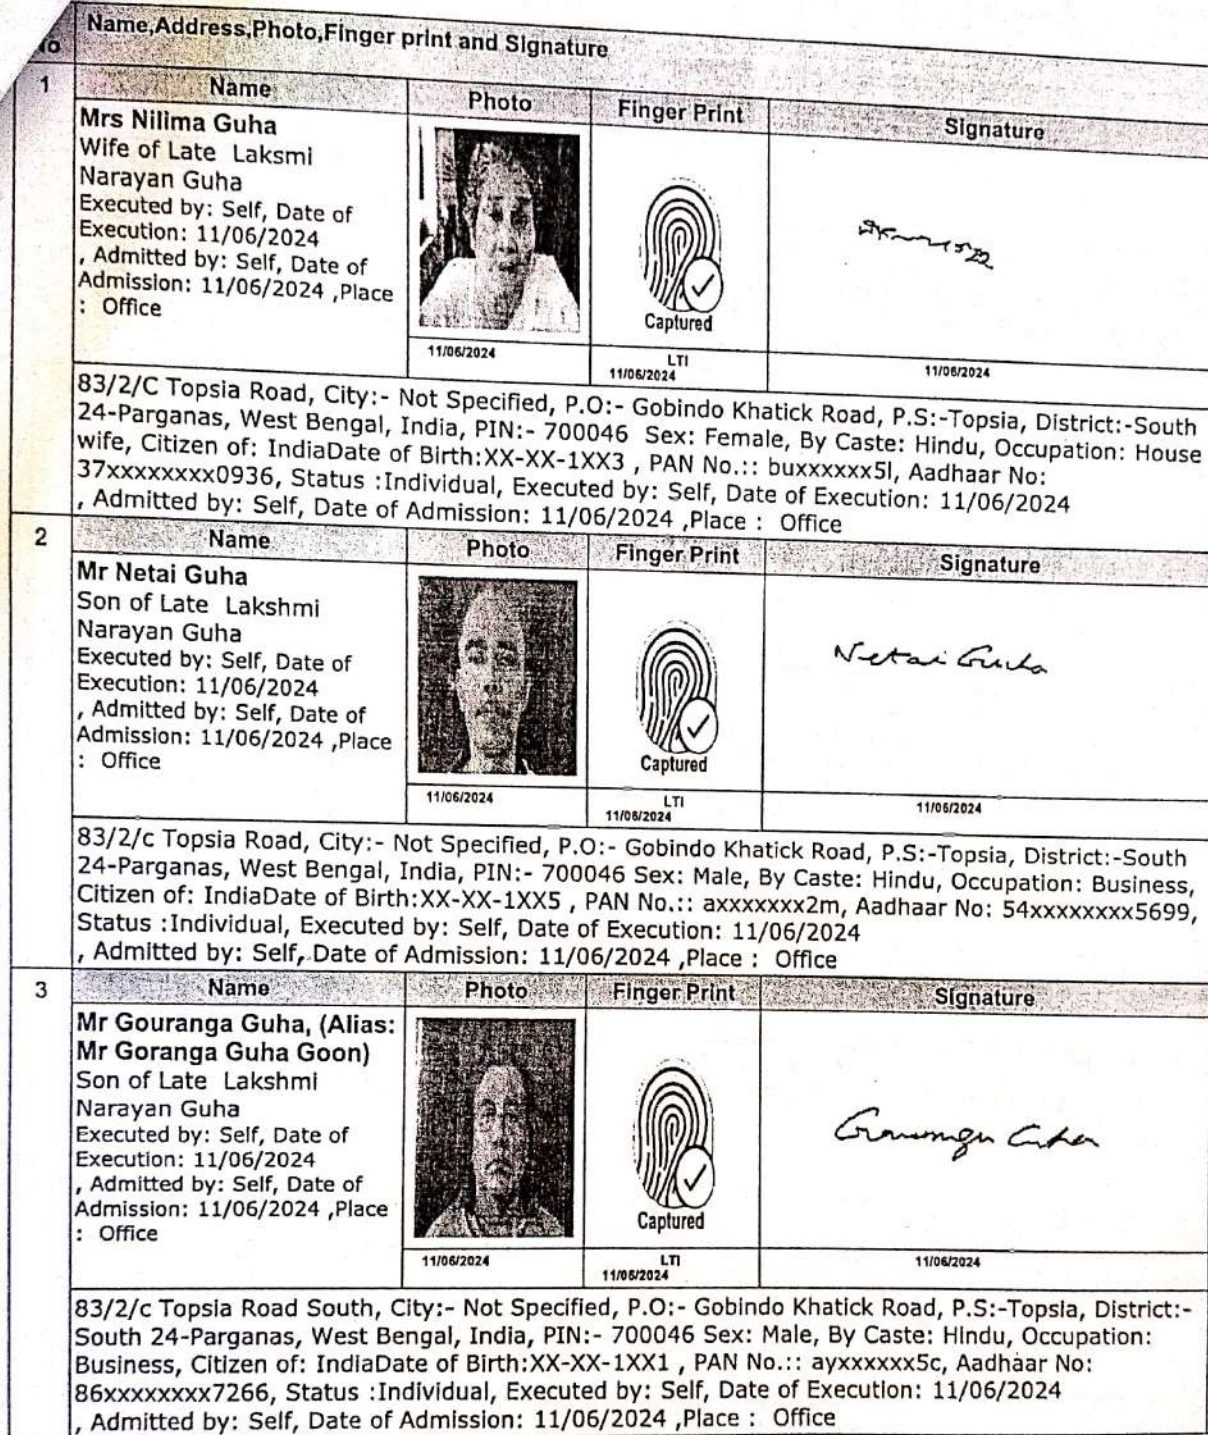 No
Name,Address,Photo,Finger print and Signature
1
Name
Photo
Finger Print
Signature
Mrs Nilima Guha
Wife of Late Laksmi
Narayan Guha
Executed by: Self, Date of
Execution: 11/06/2024
, Admitted by: Self, Date of
Admission: 11/06/2024 ,Place
: Office
Captured
11/06/2024
LTI
11/06/2024
11/06/2024
83/2/C Topsia Road, City:- Not Specified, P.O:- Gobindo Khatick Road, P.S:-Topsia, District:-South
24-Parganas, West Bengal, India, PIN:- 700046 Sex: Female, By Caste: Hindu, Occupation: House
wife, Citizen of: IndiaDate of Birth:XX-XX-1XX3 , PAN No.:: buxxxxxx5l, Aadhaar No:
37xxxxxxxx0936, Status :Individual, Executed by: Self, Date of Execution: 11/06/2024
, Admitted by: Self, Date of Admission: 11/06/2024 ,Place : Office
2
Name
Photo
Finger Print
Signature
Mr Netai Guha
Son of Late Lakshmi
Narayan Guha
Executed by: Self, Date of
Execution: 11/06/2024
, Admitted by: Self, Date of
Admission: 11/06/2024 ,Place
: Office
Captured
Netai Guha
11/06/2024
LTI
11/06/2024
11/06/2024
83/2/c Topsia Road, City:- Not Specified, P.O:- Gobindo Khatick Road, P.S:-Topsia, District:-South
24-Parganas, West Bengal, India, PIN:- 700046 Sex: Male, By Caste: Hindu, Occupation: Business,
Citizen of: IndiaDate of Birth:XX-XX-1XX5 , PAN No.:: axxxxxxx2m, Aadhaar No: 54xxxxxxxx5699,
Status :Individual, Executed by: Self, Date of Execution: 11/06/2024
, Admitted by: Self, Date of Admission: 11/06/2024 ,Place : Office
3
Name
Photo
Finger Print
Signature
Mr Gouranga Guha, (Alias:
Mr Goranga Guha Goon)
Son of Late Lakshmi
Narayan Guha
Executed by: Self, Date of
Execution: 11/06/2024
, Admitted by: Self, Date of
Admission: 11/06/2024 ,Place
: Office
Captured
Gouranga Guha
11/06/2024
LTI
11/06/2024
11/06/2024
83/2/c Topsia Road South, City:- Not Specified, P.O:- Gobindo Khatick Road, P.S:-Topsia, District:-
South 24-Parganas, West Bengal, India, PIN:- 700046 Sex: Male, By Caste: Hindu, Occupation:
Business, Citizen of: IndiaDate of Birth:XX-XX-1XX1 , PAN No.:: ayxxxxxx5c, Aadhaar No:
86xxxxxxxx7266, Status :Individual, Executed by: Self, Date of Execution: 11/06/2024
, Admitted by: Self, Date of Admission: 11/06/2024 ,Place : Office